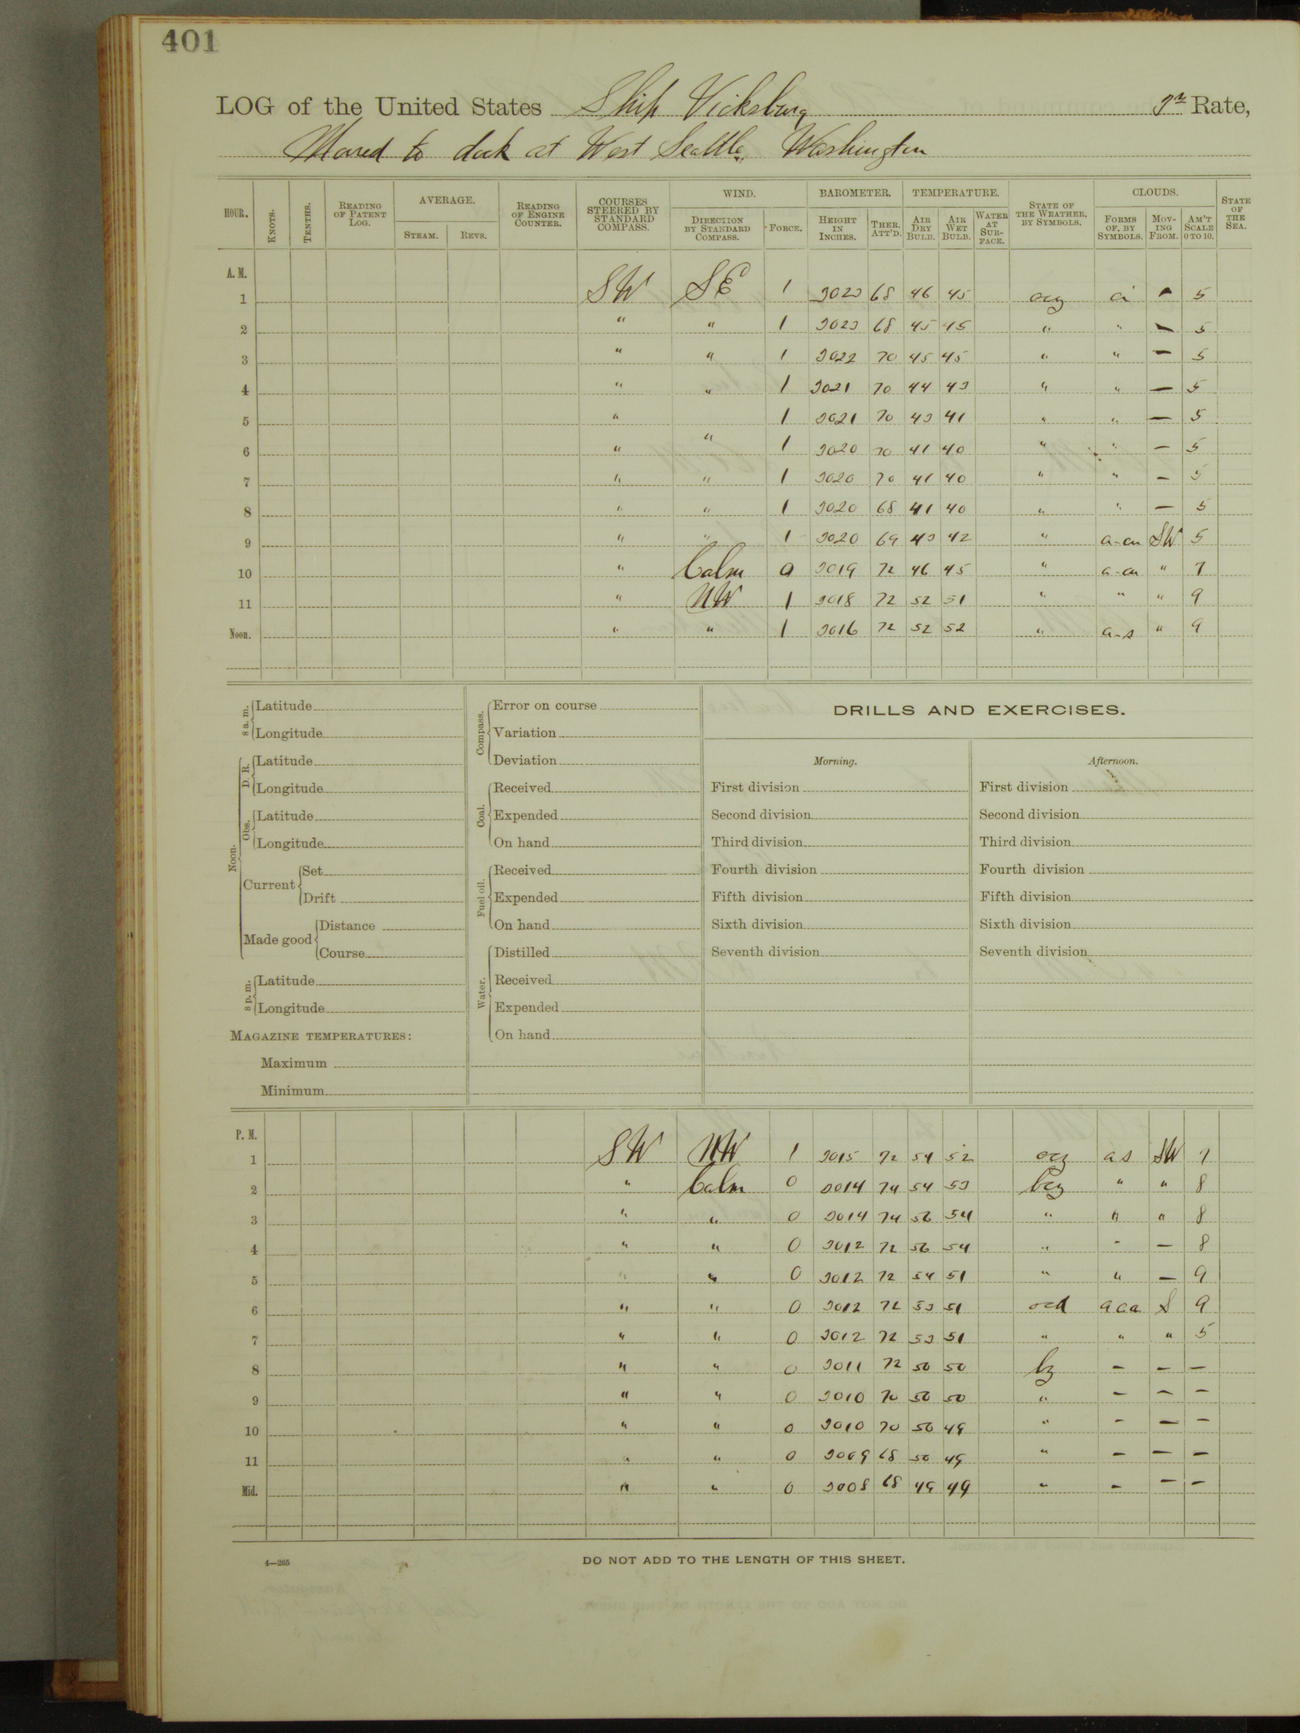 401
LOG of the United States Ship Vicksburg 3rd Rate,
Moored to dock at West Seattle, Washington
HOUR. KNOTS. TENTHS. READING OF PATENT LOG. AVERAGE. STEAM. REVS. READING OF ENGINE COUNTER. COURSES STEERED BY STANDARD COMPASS. WIND. DIRECTION BY STANDARD COMPASS. FORCE. BAROMETER. HEIGHT IN INCHES. THER. ATT'D. TEMPERATURE. AIR DRY BULB. AIR WET BULB. WATER AT SURFACE. STATE OF THE WEATHER, BY SYMBOLS. CLOUDS. FORMS OF, BY SYMBOLS. MOVING FROM. AM'T SCALE 0 TO 10. STATE OF THE SEA.
A. M.
1 SW SE 1 3023 68 46 45 ocg ci - 5
2 " " 1 3023 68 45 45 " " - 5
3 " " 1 3022 70 45 45 " " - 5
4 " " 1 3021 70 44 43 " " - 5
5 " 1 3021 70 43 41 " " - 5
6 " " 1 3020 70 41 40 " " - 5
7 " " 1 3020 70 41 40 " " - 5
8 " " 1 3020 68 41 40 " " - 5
9 " " 1 3020 69 43 42 " a-cu SW 5
10 " Calm 0 3019 72 46 45 " a-cu " 7
11 " NW 1 3018 72 52 51 " " " 9
Noon. " " 1 3016 72 52 52 " a-s " 9
8 a. m. Latitude
Longitude
Noon. D. R. Latitude
Longitude
Obs. Latitude
Longitude
Current Set
Drift
Made good Distance
Course
8 p. m. Latitude
Longitude
MAGAZINE TEMPERATURES:
Maximum
Minimum
Compass. Error on course
Variation
Deviation
Coal. Received
Expended
On hand
Fuel oil. Received
Expended
On hand
Water. Distilled
Received
Expended
On hand
DRILLS AND EXERCISES.
Morning.
First division
Second division
Third division
Fourth division
Fifth division
Sixth division
Seventh division
Afternoon.
First division
Second division
Third division
Fourth division
Fifth division
Sixth division
Seventh division
P. M.
1 SW NW 1 3015 72 54 52 ocg as SW 7
2 " Calm 0 3014 74 54 53 bcg " " 8
3 " " 0 3014 74 56 54 " " " 8
4 " " 0 3012 72 56 54 " " - 8
5 " " 0 3012 72 54 51 " " - 9
6 " " 0 3012 72 53 51 ocd S 9
7 " " 0 3012 72 53 51 " " " 5
8 " " 0 3011 72 50 50 bz - - -
9 " " 0 3010 70 50 50 " - - -
10 " " 0 3010 70 50 49 " - - -
11 " " 0 3009 68 50 49 " - - -
Mid. " " 0 3008 68 49 49 " - - -
4—265
DO NOT ADD TO THE LENGTH OF THIS SHEET.